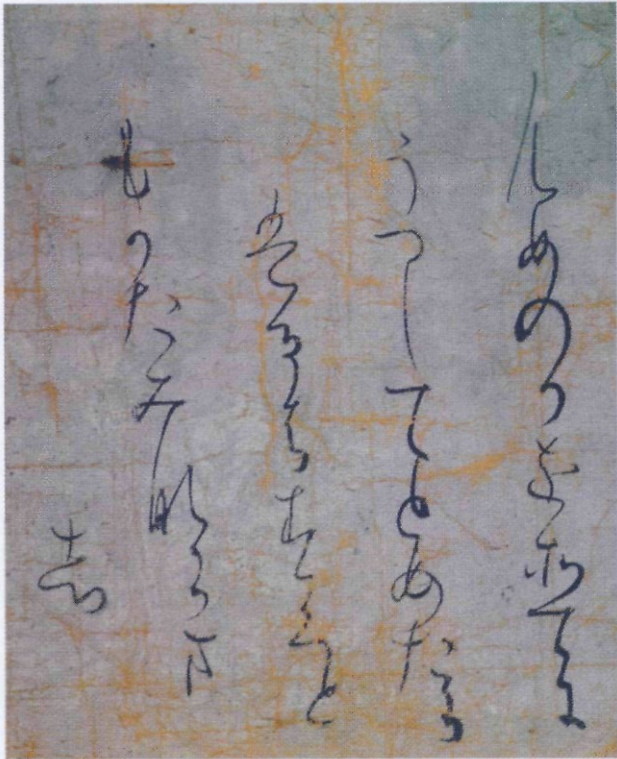 むめのかをそてに
うつしてとめたら
はゝるはすくと
もかたみならま
し